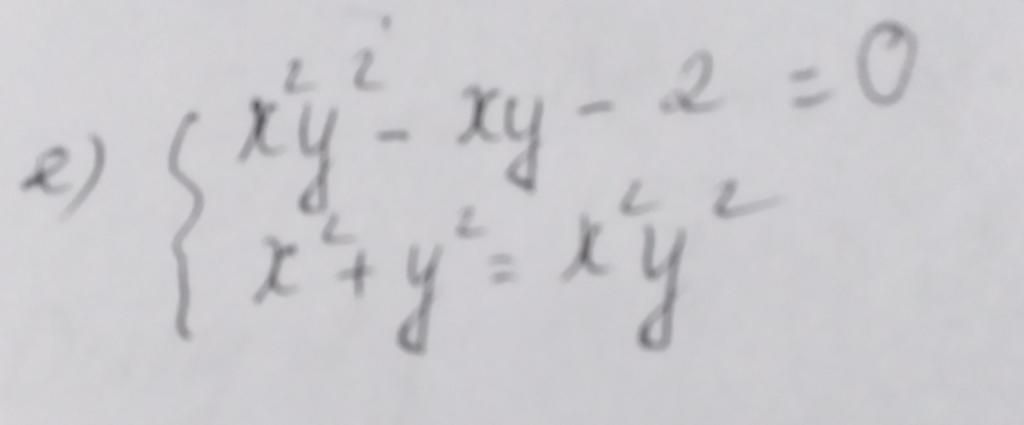 е) { x²y² - xy - 2 = 0
x² + y² = x²y²